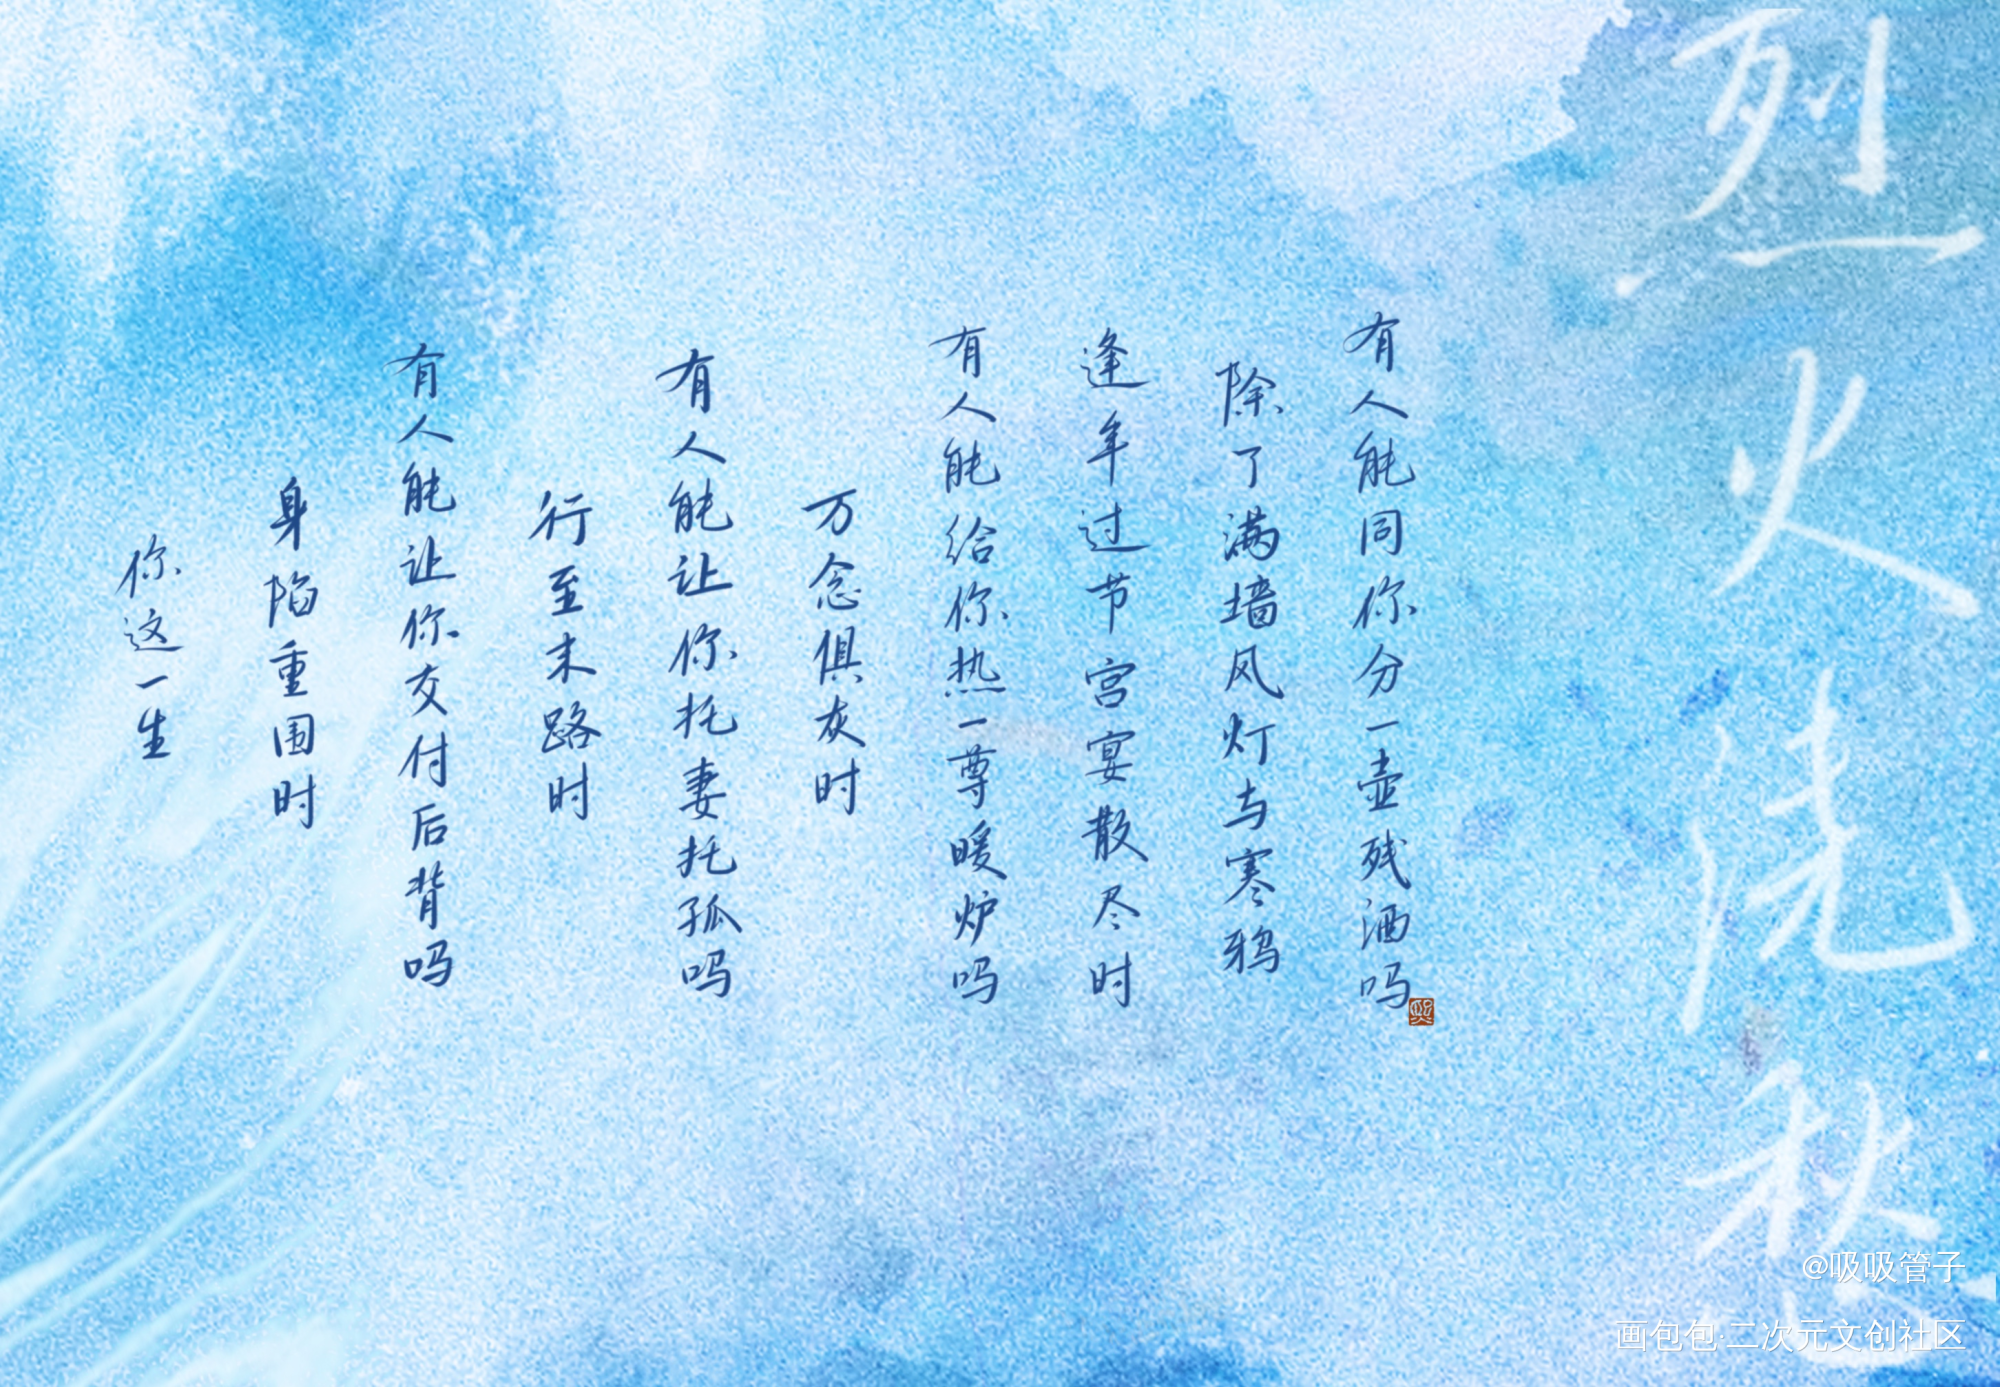 烈火浇愁
你这一生
身陷重围时
有人能让你交付后背吗
行至末路时
有人能让你托妻托孤吗
万念俱灰时
有人能给你热一尊暖炉吗
逢年过节宫宴散尽时
除了满墙风灯与寒鸦
有人能同你分一壶残酒吗
@吸吸管子
画包包·二次元文创社区